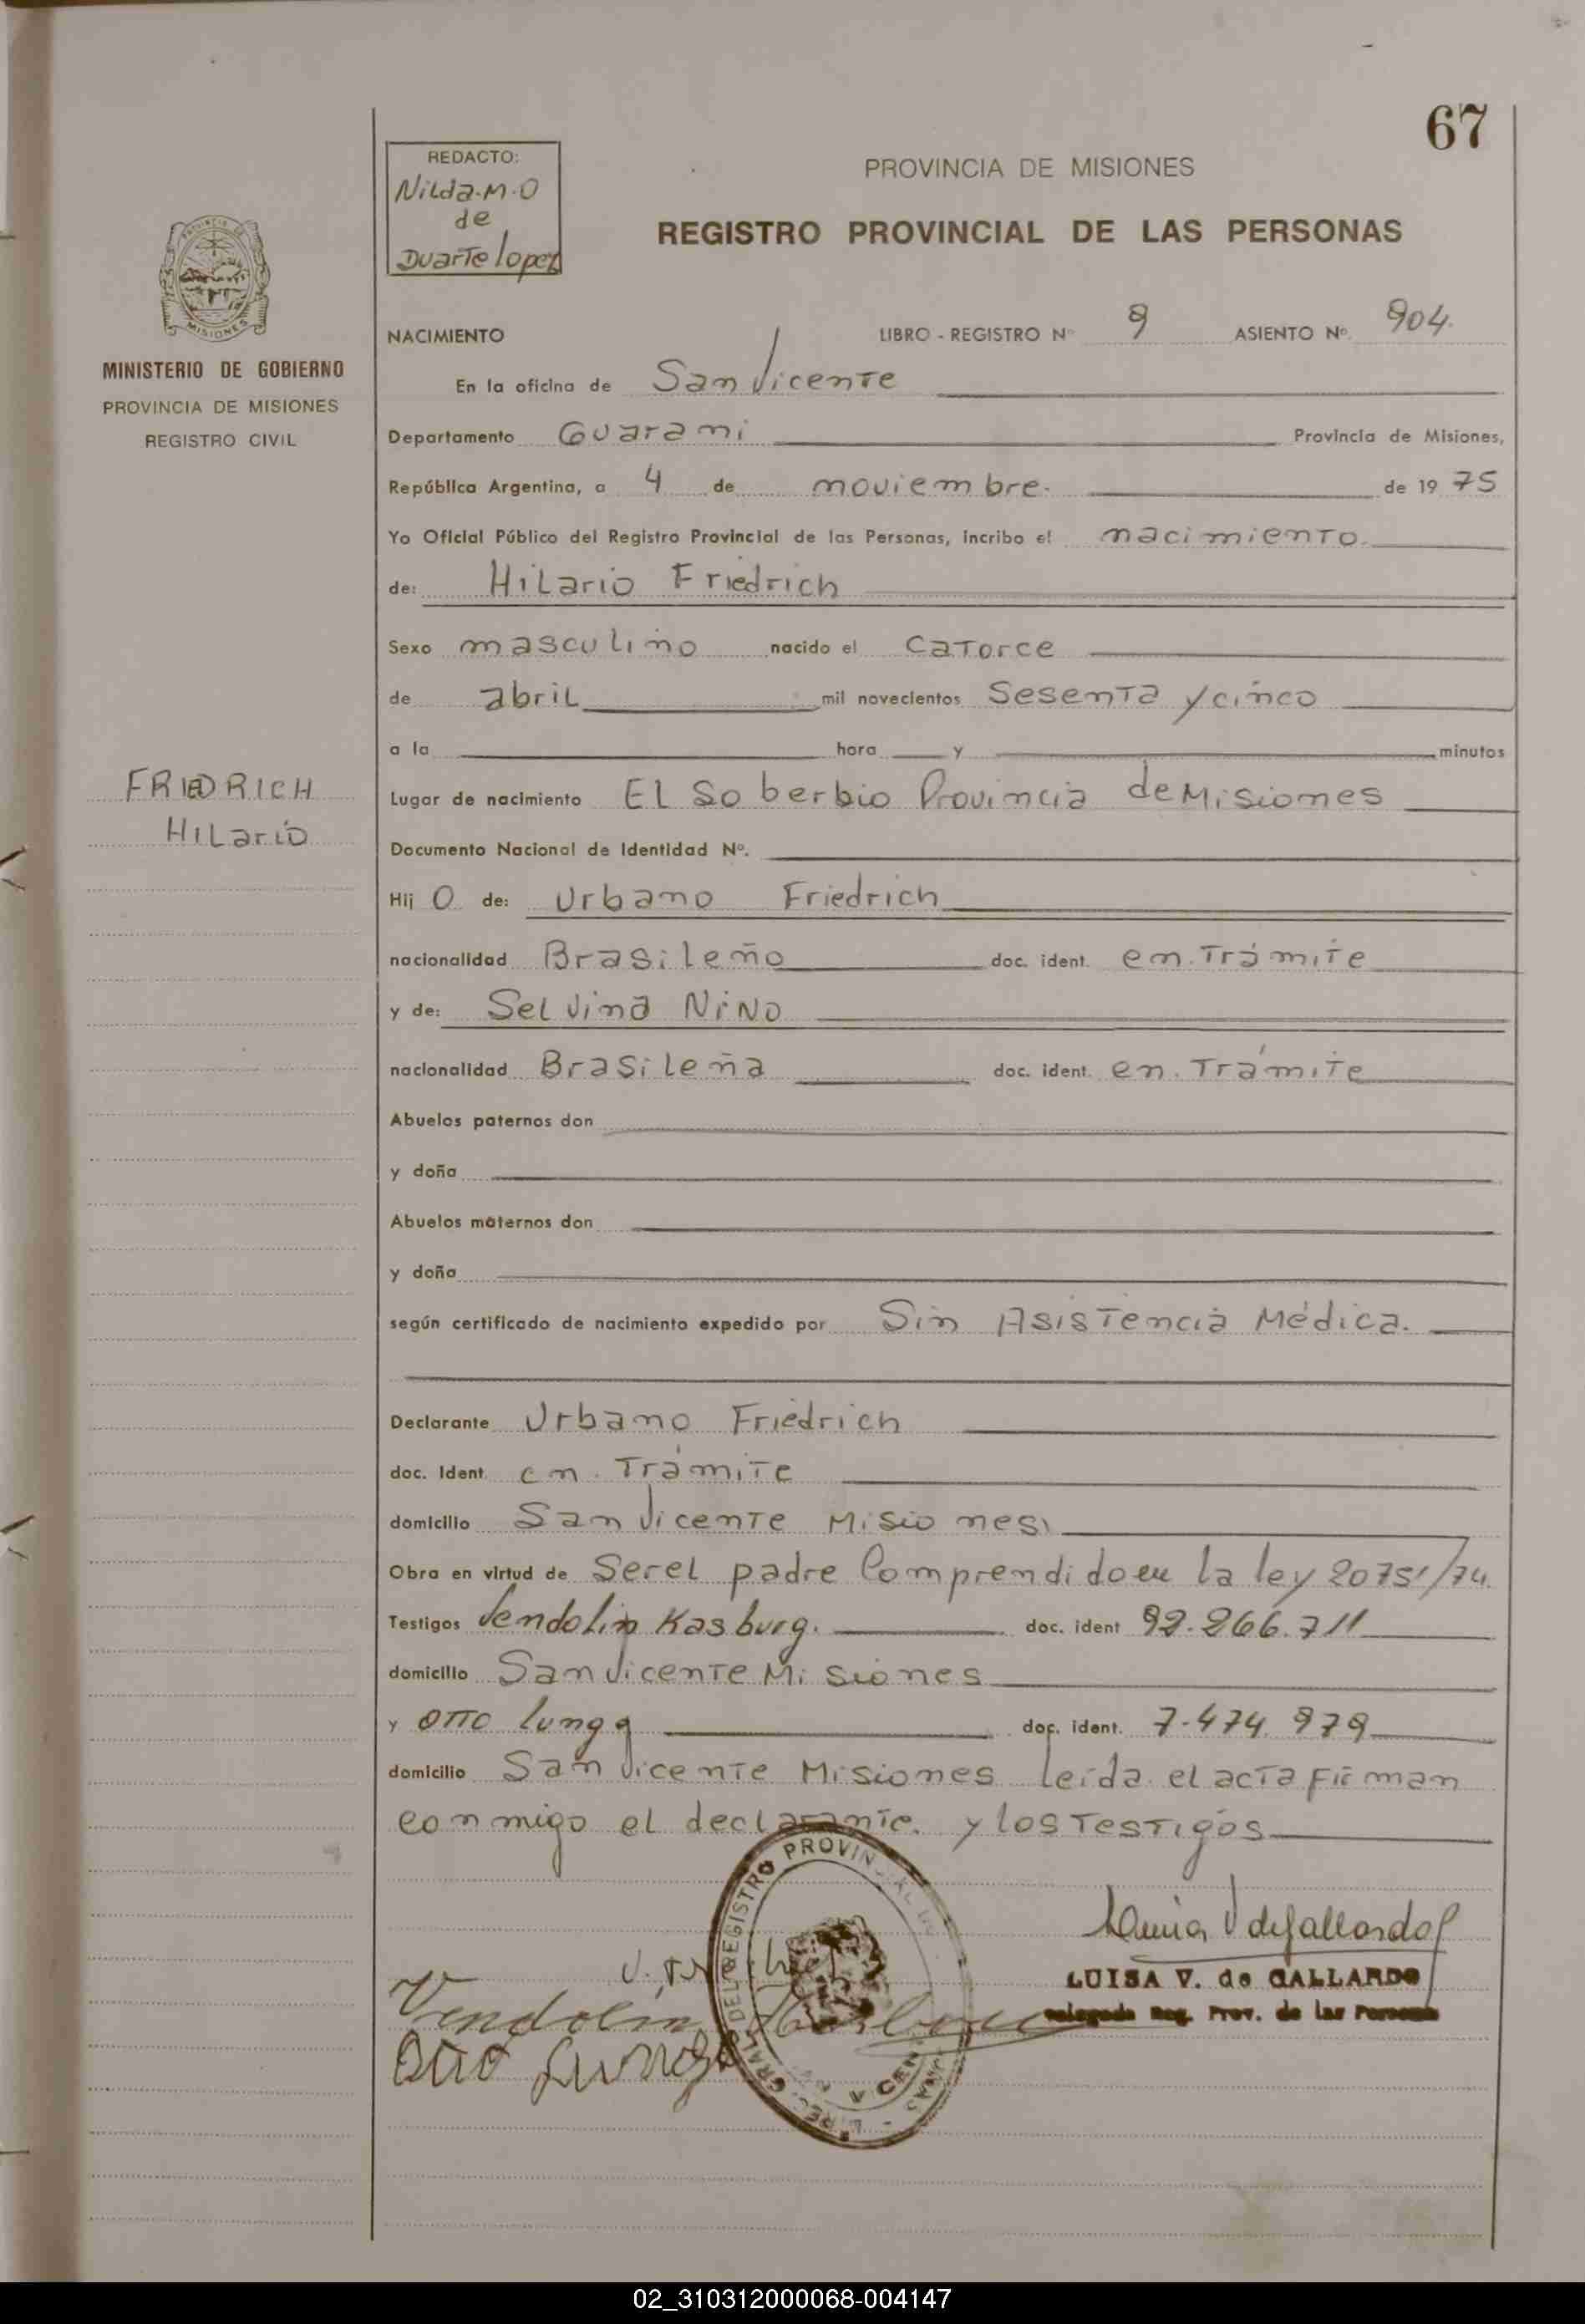 67
REDACTO:
Nilda.M.O
de
Duarte lopez
PROVINCIA DE MISIONES
REGISTRO PROVINCIAL DE LAS PERSONAS
MISIONES
MINISTERIO DE GOBIERNO
PROVINCIA DE MISIONES
REGISTRO CIVIL
NACIMIENTO LIBRO - REGISTRO Nº 9 ASIENTO Nº. 904.
En la oficina de San Vicente
Departamento Guarami Provincia de Misiones,
República Argentina, a 4 de moviembre. de 19 75
Yo Oficial Público del Registro Provincial de las Personas, incribo el nacimiento.
de: Hilario Friedrich
Sexo masculino nacido el catorce
de abril mil novecientos Sesenta y cinco
a la hora y minutos
FRIEDRICH
Hilario
Lugar de nacimiento El Soberbio Provincia de Misiones
Documento Nacional de Identidad Nº.
Hij o de: Urbano Friedrich
nacionalidad Brasileño doc. ident. en. Trámite
y de: Selvina Nino
nacionalidad Brasileña doc. ident. en. Trámite
Abuelos paternos don
y doña
Abuelos maternos don
y doña
según certificado de nacimiento expedido por Sin Asistencia Médica.
Declarante Urbano Friedrich
doc. Ident. en. Trámite
domicilio San Vicente Misiones
Obra en virtud de Ser el padre Comprendido en la ley 20751/74.
Testigos Vendolin Kasburg. doc. ident 92.266.711
domicilio San Vicente Misiones
y Otto lungg doc. ident. 7.474.979
domicilio San Vicente Misiones leída el acta Firman
conmigo el declarante. y los Testigos
Luisa V de Gallardo
LUISA V. de GALLARDO
Delegada Reg. Prov. de las Personas
Vendolin
Otto
DEL REGISTRO PROVIN
GRAL
02_310312000068-004147